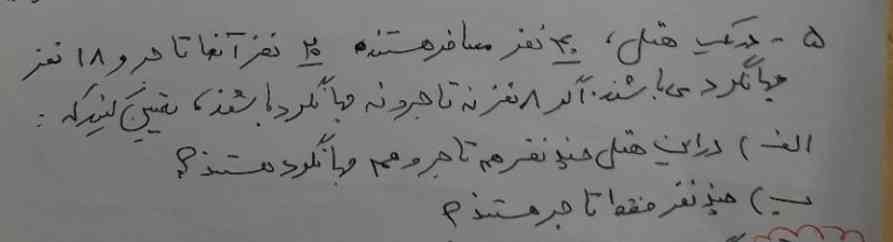 ۵ - در یک هتل، ۴۰ نفر مسافر هستند ۲۵ نفر آنها تاجر و ۱۸ نفر
جهانگرد می باشند. اگر ۸ نفر نه تاجر و نه جهانگرد باشند، تعیین کنید که :
الف) در این هتل چند نفر هم تاجر و هم جهانگرد هستند؟
ب) چند نفر فقط تاجر هستند؟